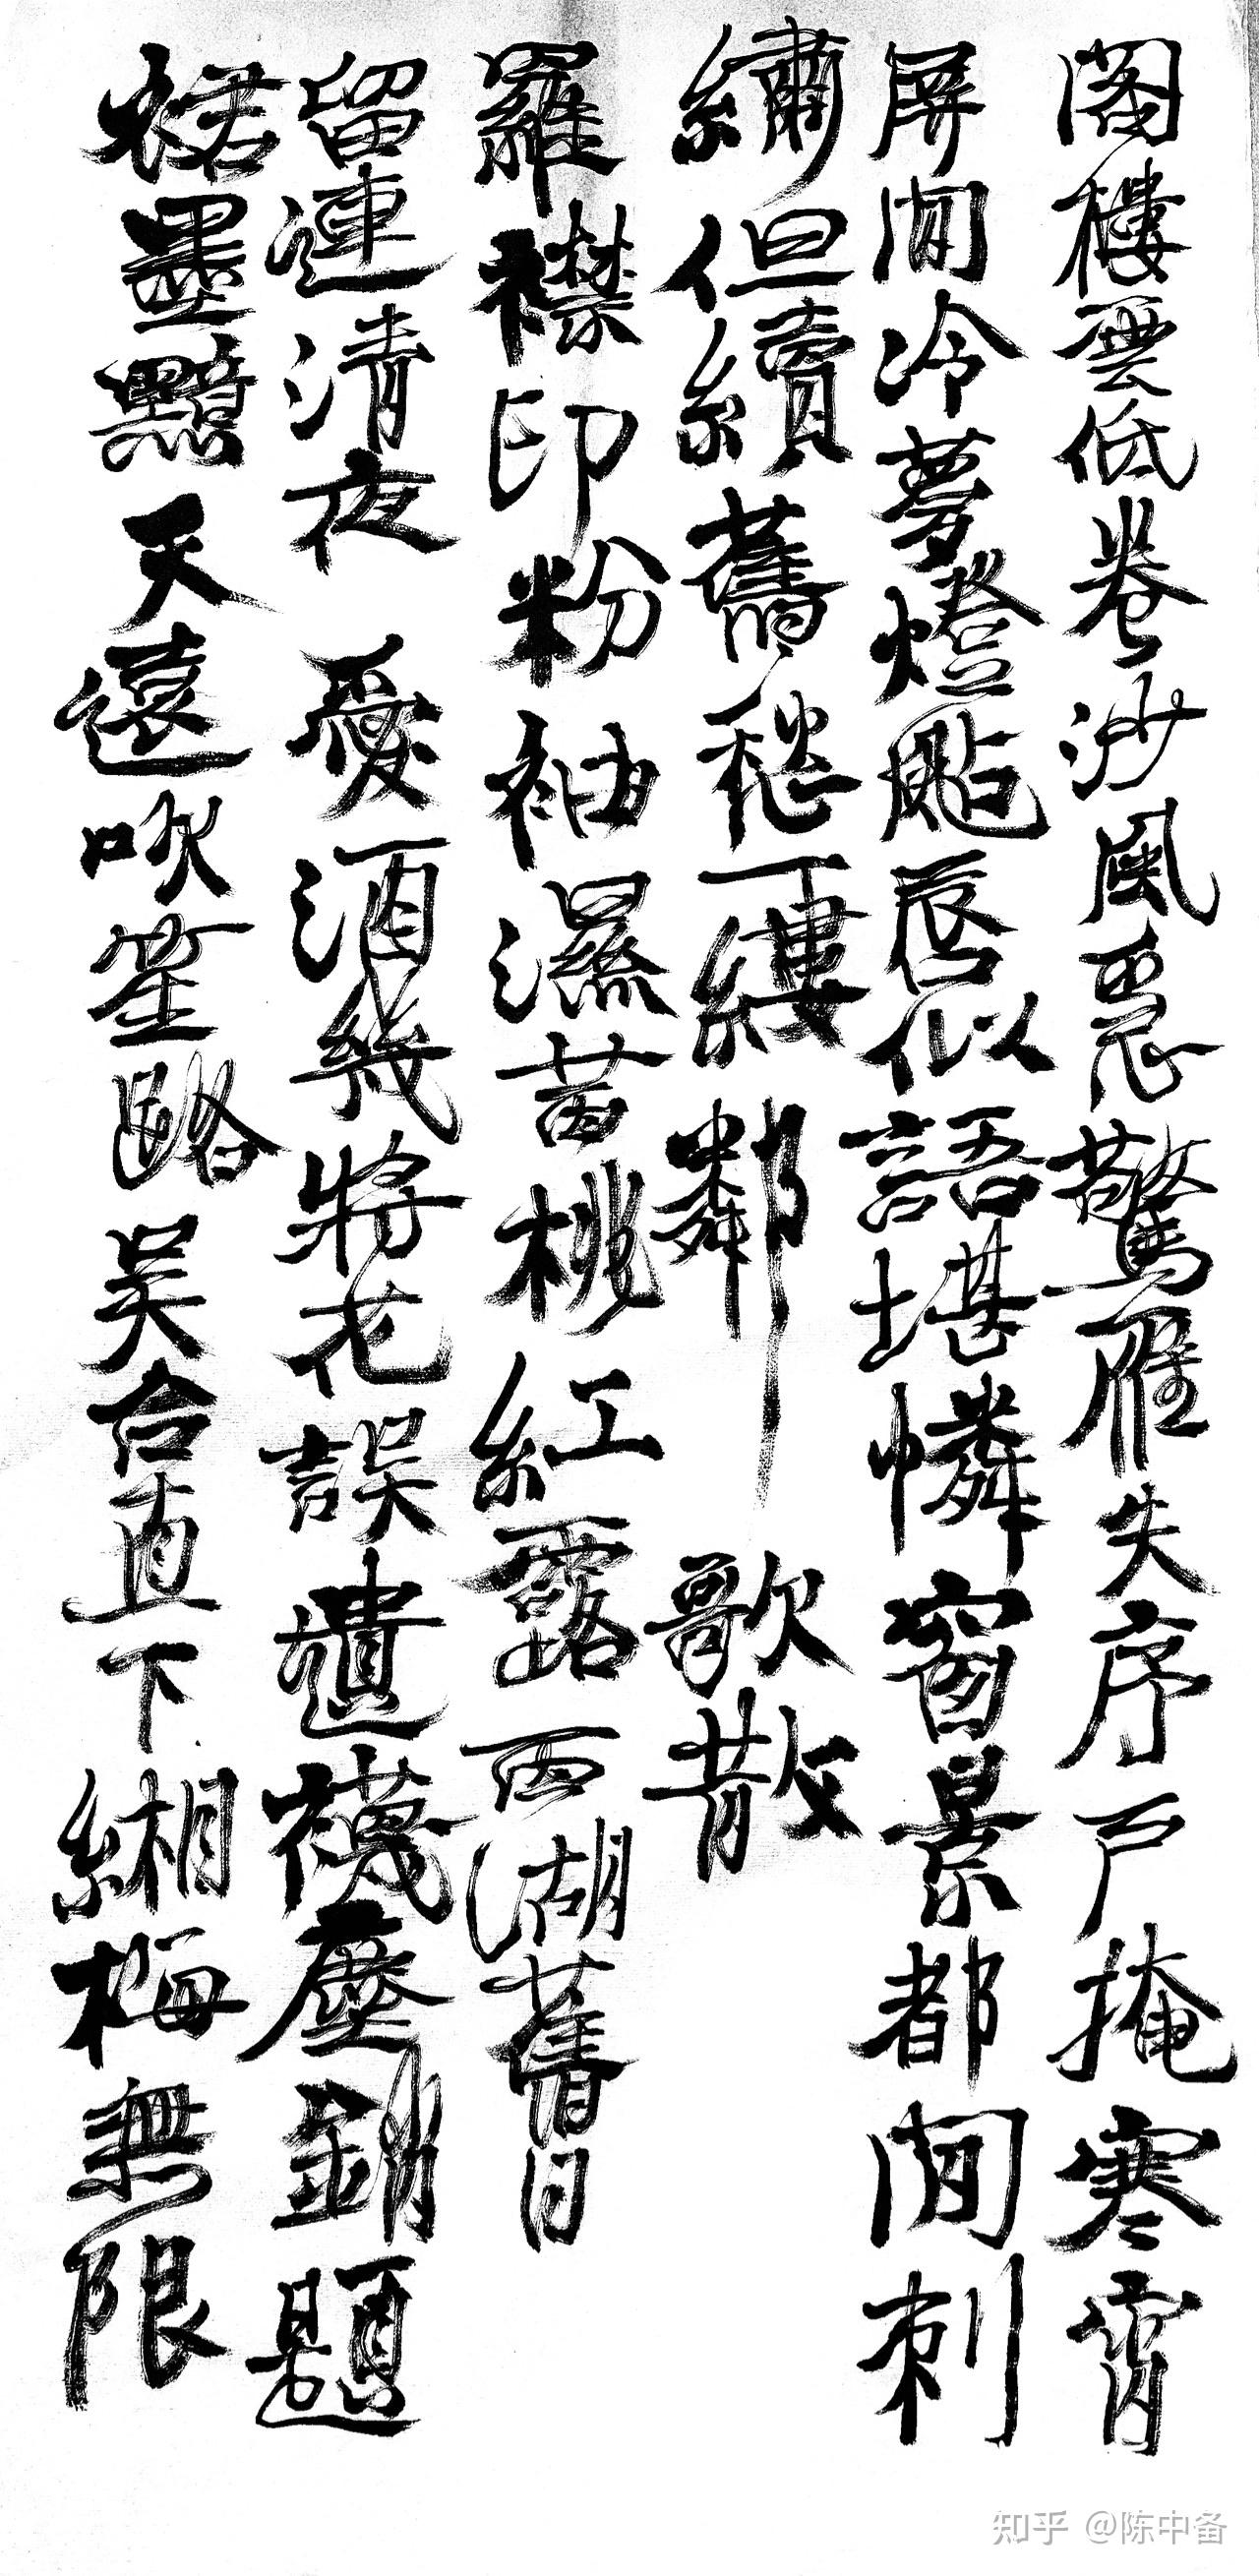 閣樓雲低卷沙風惡驚雁失序戶掩寒宵
屏間冷夢燈颭唇似語堪憐窗景都閒刺
繡但續舊愁一縷鄰歌散
羅襟印粉袖濕茜桃紅露西湖舊日
留連清夜愛酒幾將花誤遺襪塵銷題
裙墨黯天遠吹笙路吳台直下緗梅無限
知乎 @陈中备